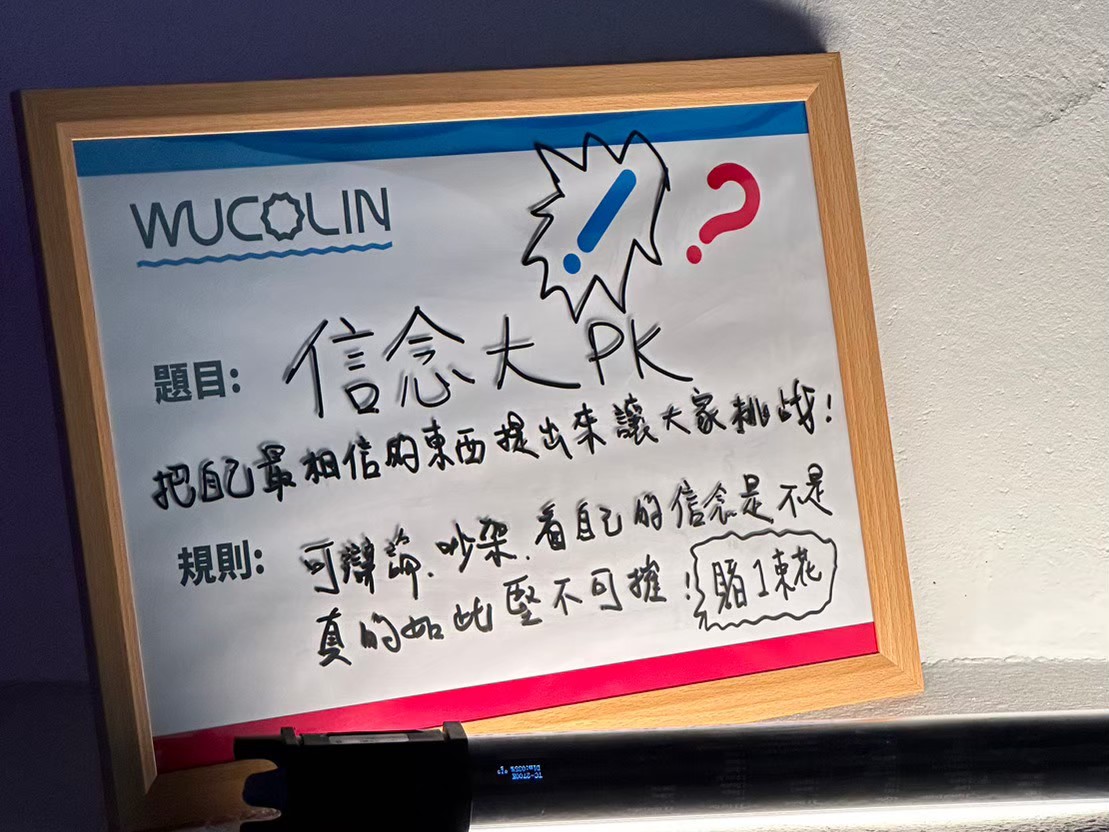 WUCOLIN
!?
題目: 信念大PK
把自己最相信的東西提出來讓大家挑战!
規則: 可辯論、吵架、看自己的信念是不是
真的如此堅不可摧!
賭1束花